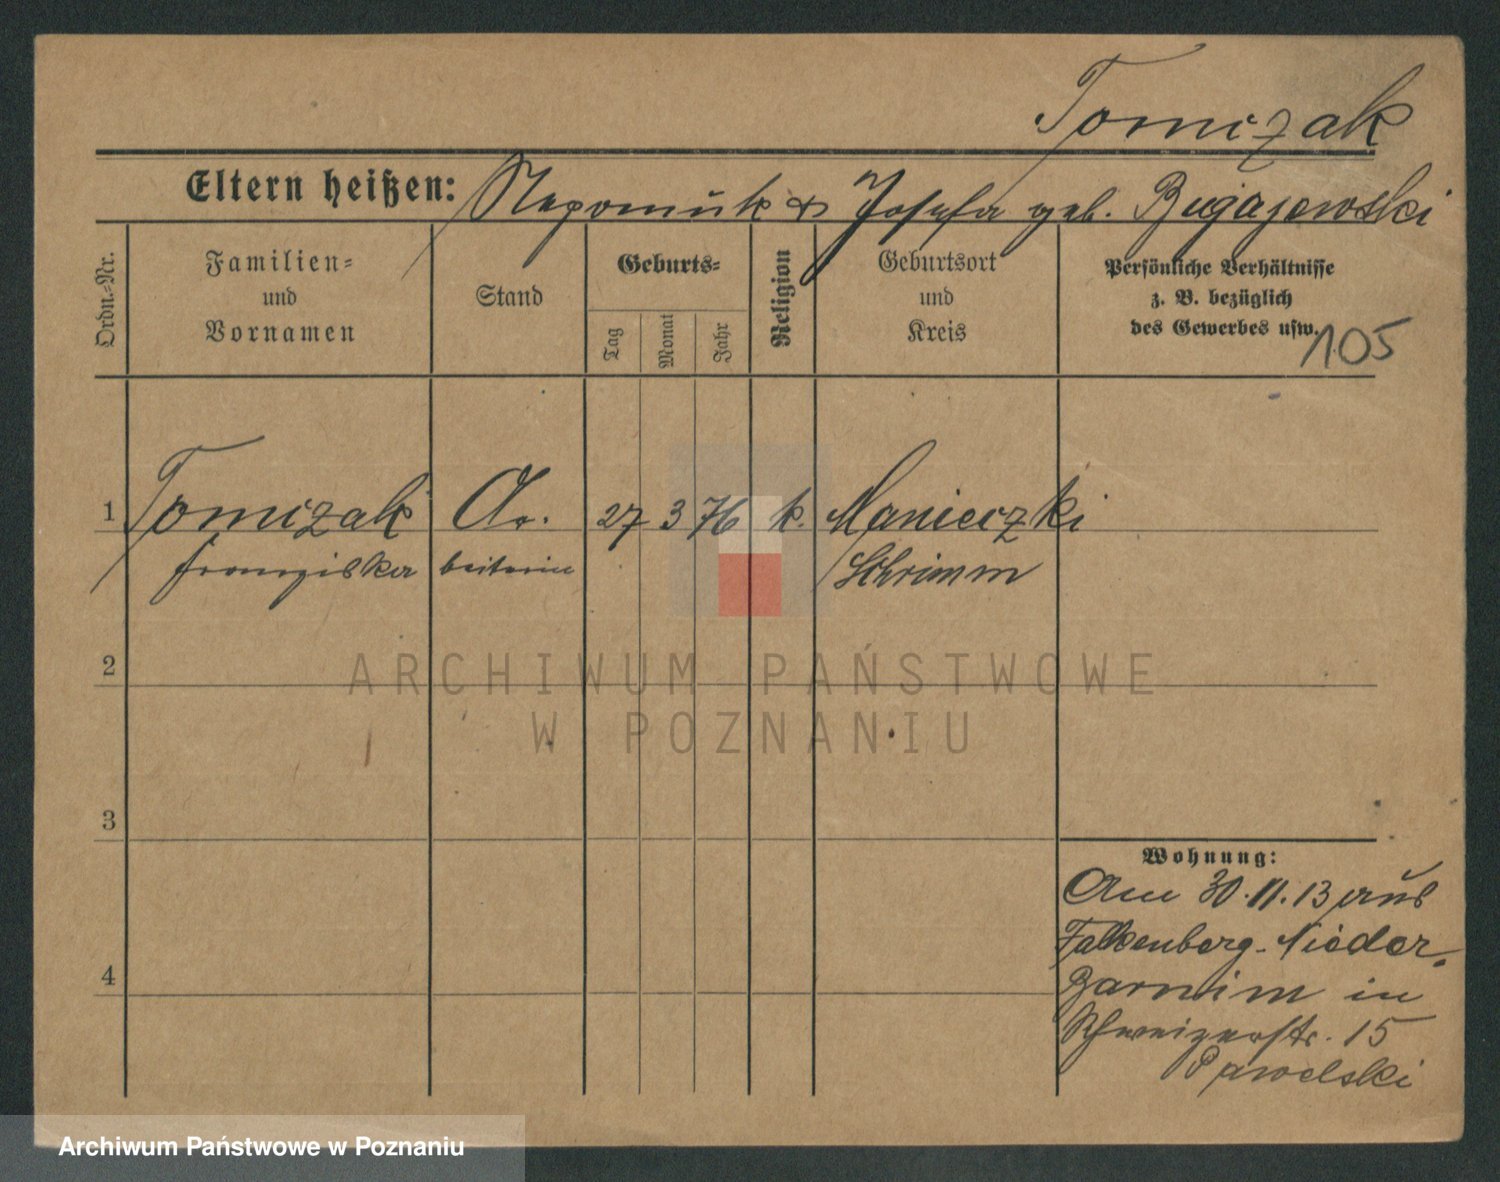 Tomczak
Eltern heißen: Nepomuk & Josefa geb. Bugajewski
Ordn.-Nr.
Familien-
und
Vornamen
Stand
Geburts-
Tag
Monat
Jahr
Religion
Geburtsort
und
Kreis
Persönliche Verhältnisse
z. B. bezüglich
des Gewerbes usw.
105
1 Tomczak Ar. 27 3 76 k. Manieczki
Franziska beiterin Schrimm
2
ARCHIWUM PAŃSTWOWE
W POZNANIU
3
Wohnung:
Am 30.11.13 aus
Falkenberg-Nieder-
4
Barnim in
Schweizerstr. 15
Pawelski
Archiwum Państwowe w Poznaniu